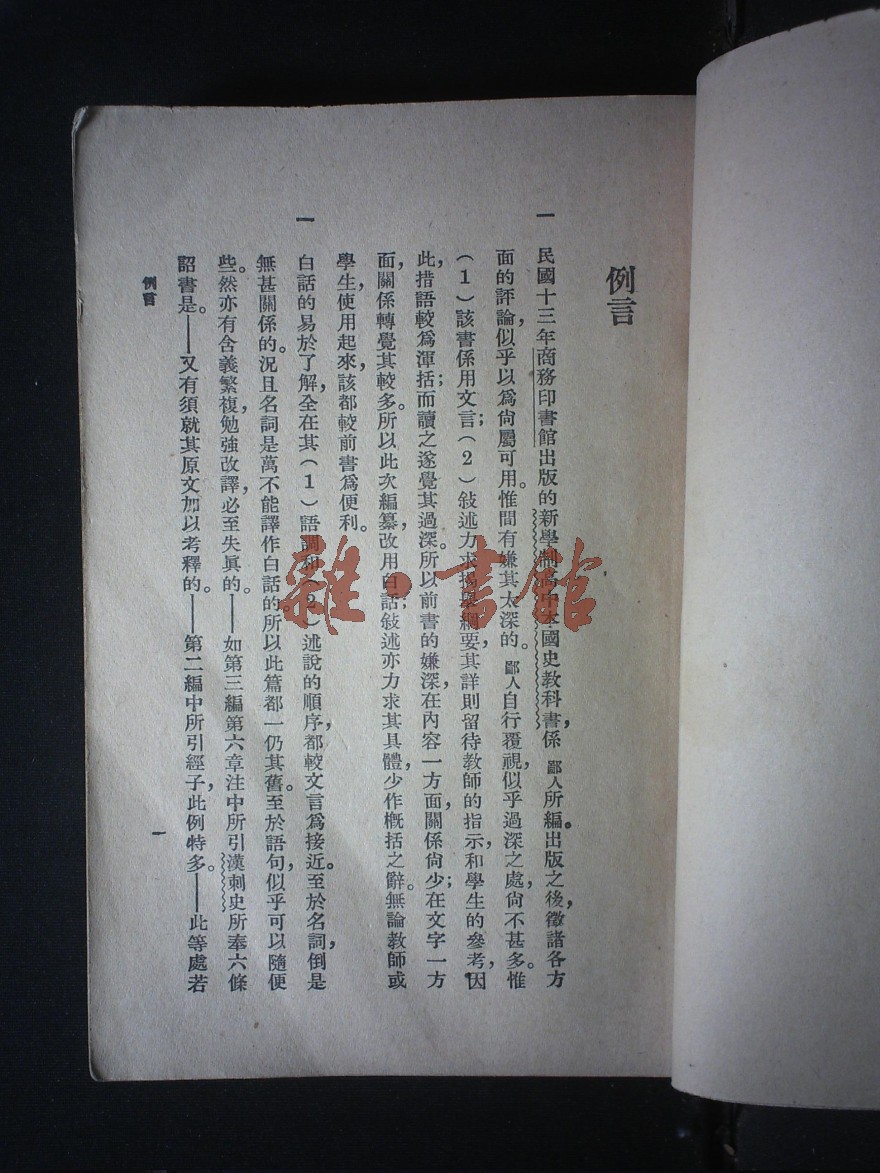 例言
一
民國十三年商務印書館出版的新學制高中本國史教科書，係鄙人所編。出版之後，徵諸各方
面的評論，似乎以爲尙屬可用。惟間有嫌其太深的。鄙人自行覆視，似乎過深之處，尙不甚多。惟
（1）該書係用文言；（2）敍述力求揭舉綱要，其詳則留待教師的指示，和學生的參考，因
此，措語較爲渾括；而讀之遂覺其過深。所以前書的嫌深，在內容一方面，關係尙少；在文字一方
面，關係轉覺其較多。所以此次編纂，改用白話；敍述亦力求其具體，少作概括之辭。無論教師或
學生，使用起來，該都較前書爲便利。
一
白話的易於了解，全在其（1）語調和（2）述說的順序，都較文言爲接近。至於名詞，倒是
無甚關係的。況且名詞是萬不能譯作白話的。所以此篇都一仍其舊。至於語句，似乎可以隨便
些。然亦有含義繁複，勉強改譯，必至失眞的。——如第三編第六章注中所引漢刺史所奉六條
詔書是。——又有須就其原文加以考釋的。——第二編中所引經子，此例特多。——此等處若
例言
一
雜·書館